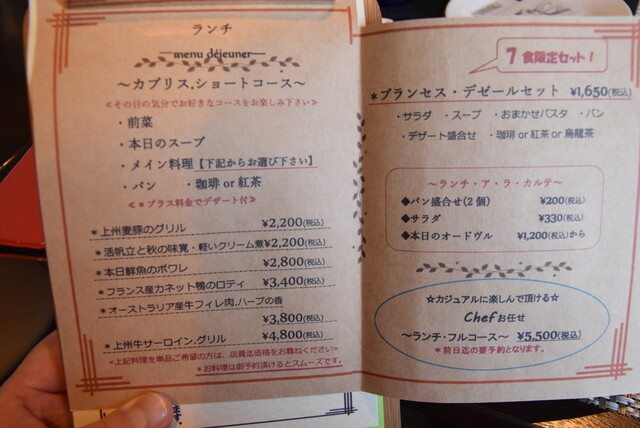 ランチ
menu déjeuner
～カプリス.ショートコース～
≪その日の気分でお好きなコースをお楽しみ下さい≫
・前菜
・本日のスープ
・メイン料理【下記からお選び下さい】
・パン ・珈琲 or 紅茶
≪＊プラス料金でデザート付≫
＊上州麦豚のグリル ¥2,200(税込)
＊活帆立と秋の味覚・軽いクリーム煮¥2,200(税込)
＊本日鮮魚のポワレ ¥2,800(税込)
＊フランス産カネット鴨のロティ ¥3,400(税込)
＊オーストラリア産牛フィレ肉.ハーブの香
¥3,800(税込)
＊上州牛サーロイン.グリル ¥4,800(税込)
≪上記料理を単品ご希望の方は、店員迄価格をお尋ねください≫
＊お料理は御予約頂けるとスムーズです。
7食限定セット！
＊プランセス・デゼールセット ¥1,650(税込)
・サラダ ・スープ ・おまかせパスタ ・パン
・デザート盛合せ ・珈琲 or 紅茶 or 烏龍茶
～ランチ・ア・ラ・カルテ～
◆パン盛合せ(2個) ¥200(税込)
◆サラダ ¥330(税込)
◆本日のオードヴル ¥1,200(税込)から
☆カジュアルに楽しんで頂ける☆
Chefお任せ
～ランチ・フルコース～ ¥5,500(税込)
＊前日迄の要予約となります。